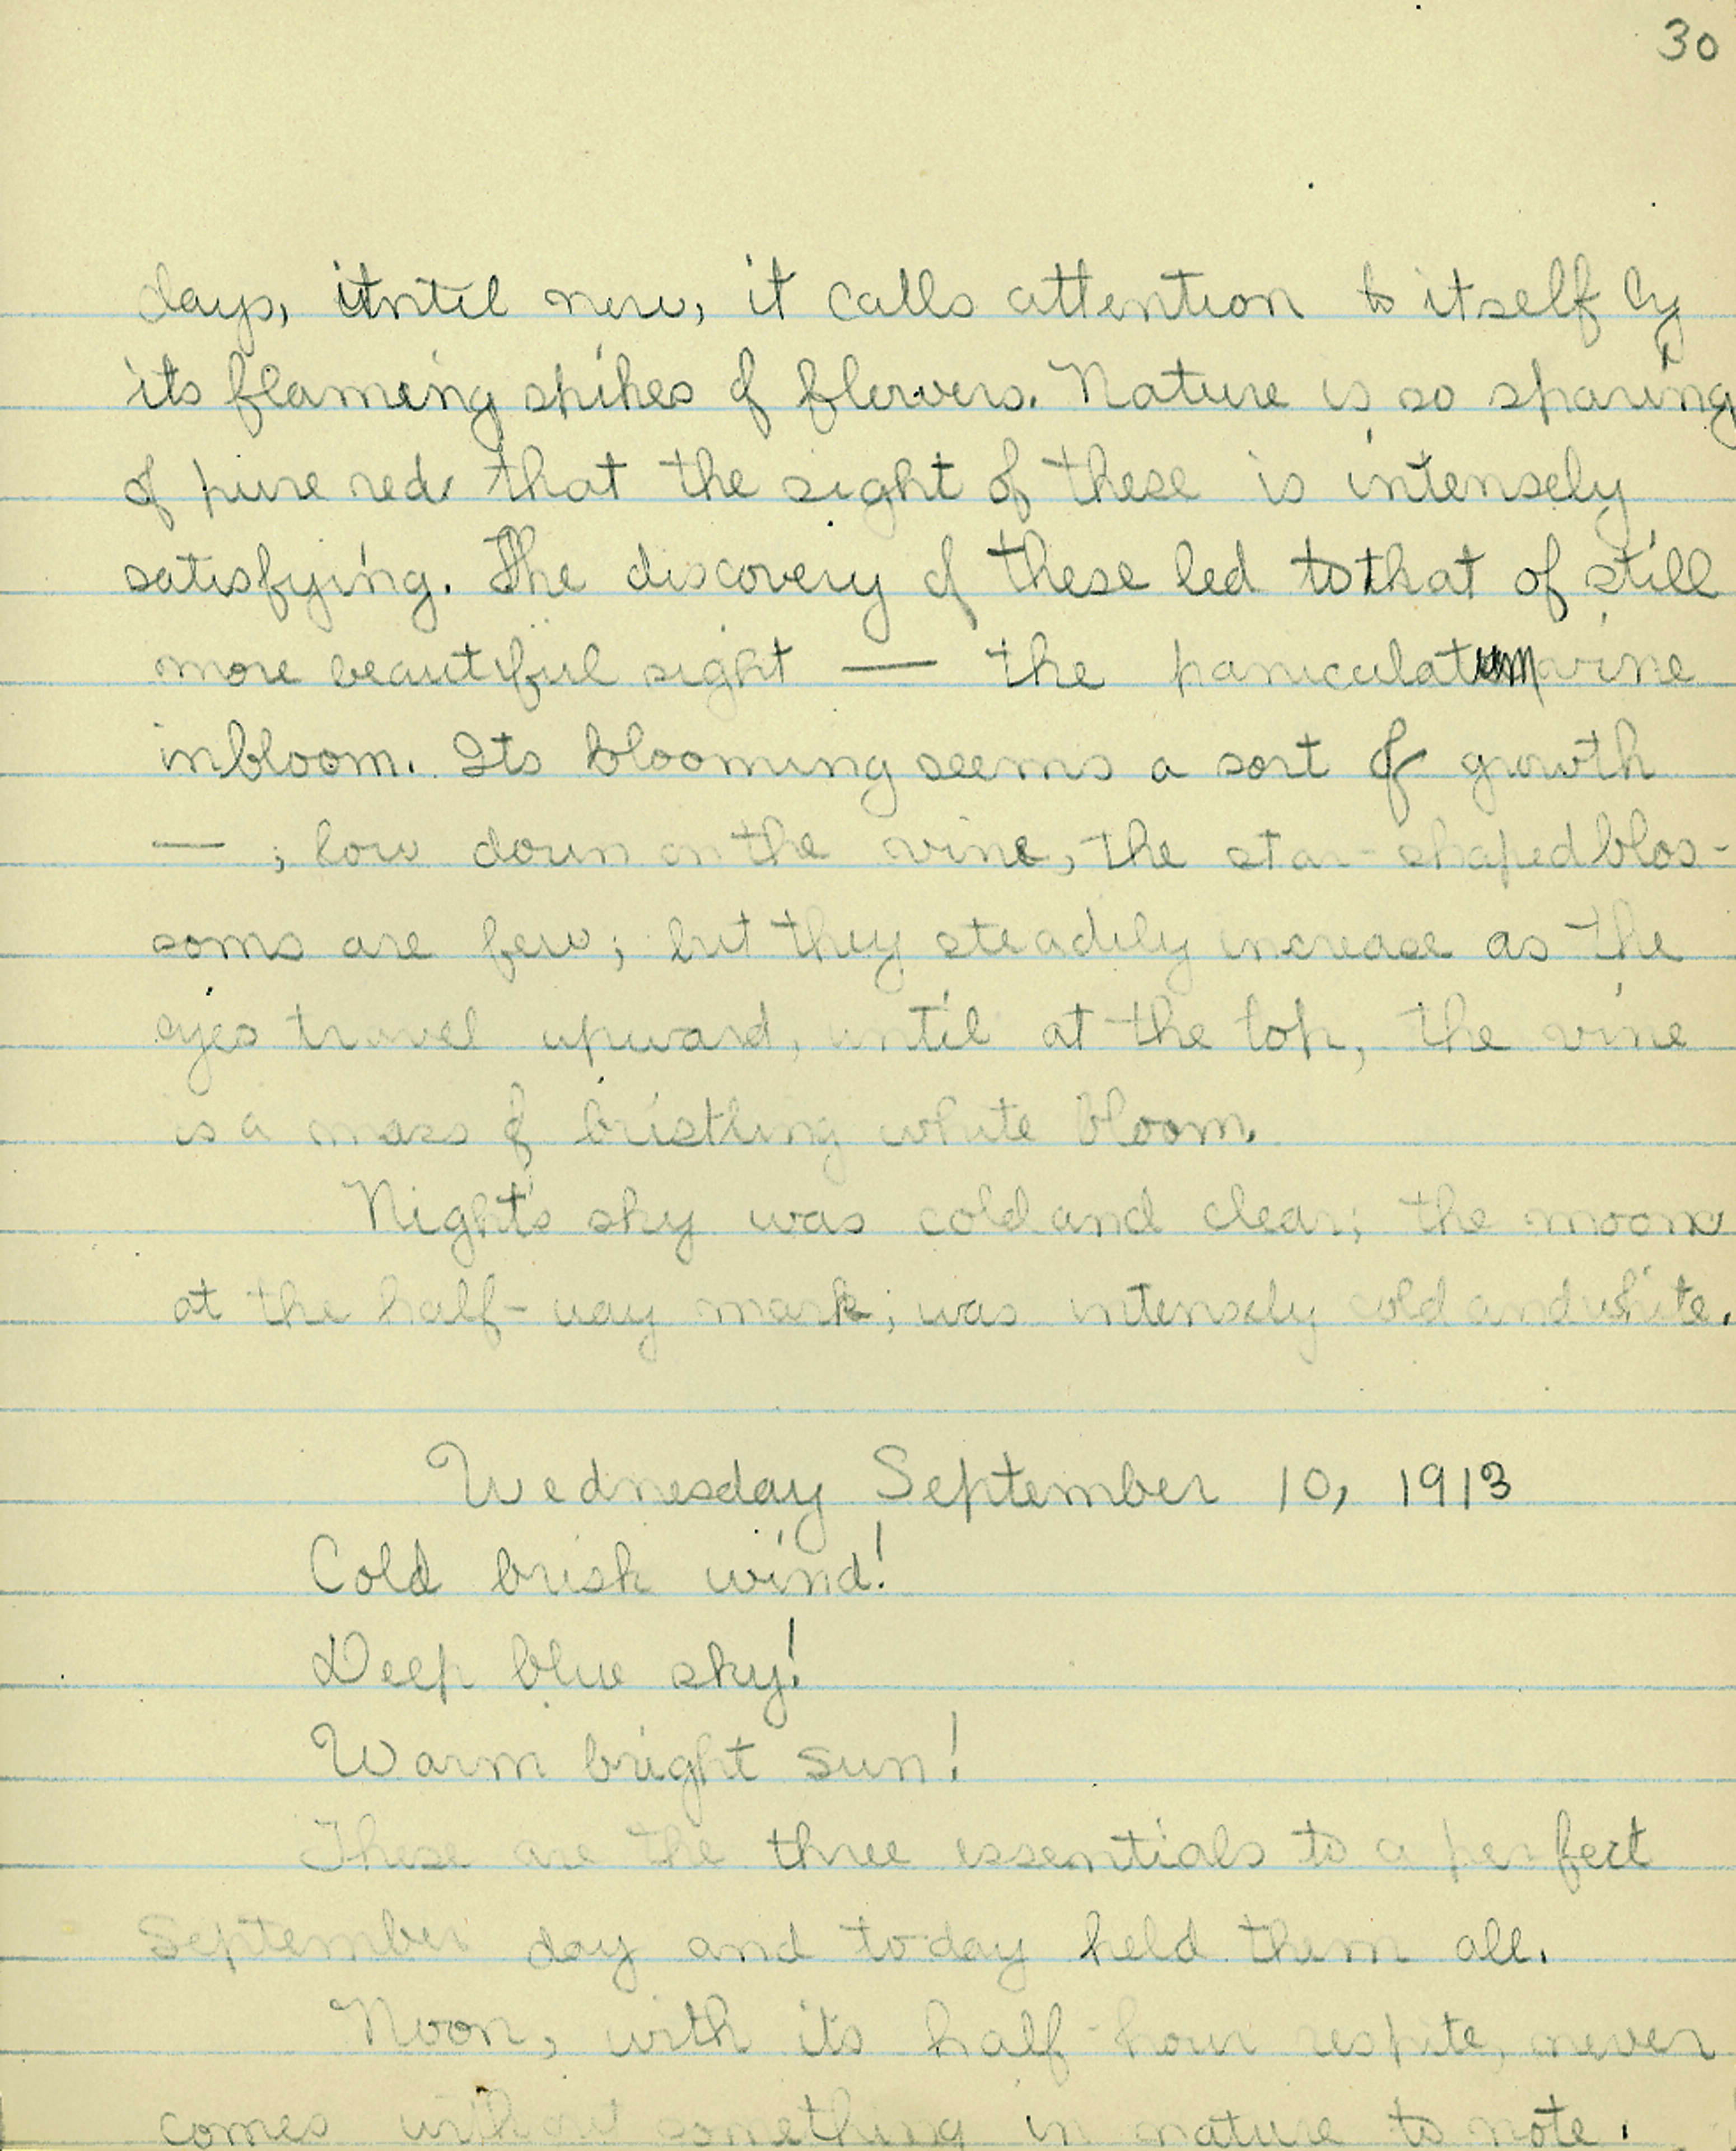 30
days, until now, it calls attention to itself by
its flaming spikes of flowers. Nature is so sparing
of pure red that the sight of these is intensely
satisfying. The discovery of these led to that of still
more beautiful sight — the paniculatum vine
in bloom. Its blooming seems a sort of growth
— ; low down on the vine, the star-shaped blos-
soms are few; but they steadily increase as the
eyes travel upward, until at the top, the vine
is a mass of bristling white bloom.
Night's sky was cold and clear; the moon
at the half-way mark; was intensely cold and white.
Wednesday September 10, 1913
Cold brisk wind!
Deep blue sky!
Warm bright sun!
These are the three essentials to a perfect
September day and today held them all.
Noon, with its half-hour respite, never
comes without something in nature to note.